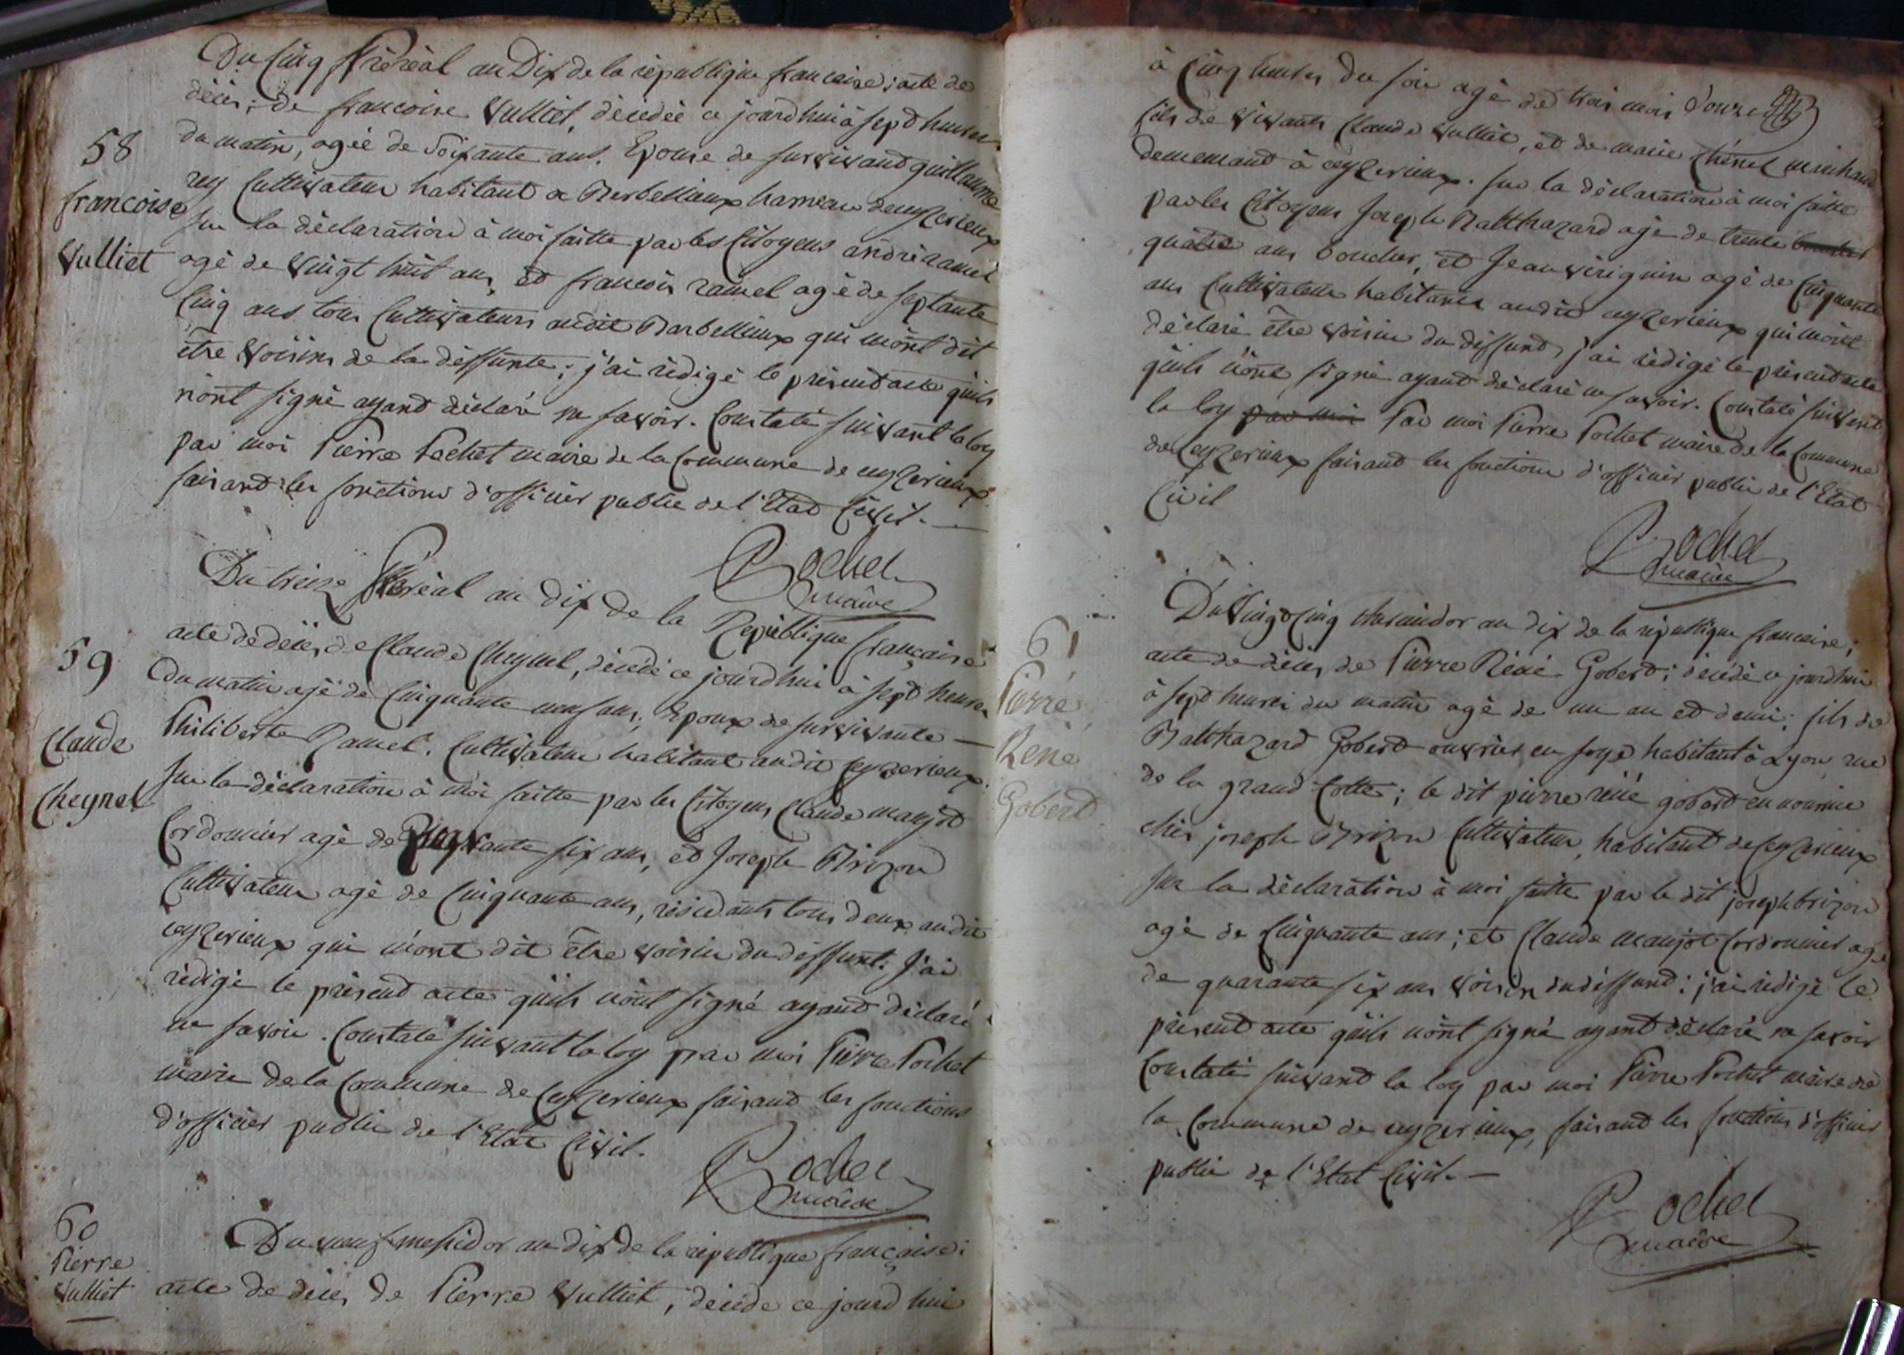 Du Cinq floréal an Dix de la république francaise; acte de
décès, de francoise Vulliet, décédée ce jourd'huy à sept heures
58
du matin, agée de soixante ans. Epouse de survivand guillaume
rey Cultivateur habitant a Barbellieux hameau de ceyzerieux
francoise
Vulliet
sur la déclaration à moi faitte par les Citoyens andré ramel
agé de vingt huit ans, et francois ramel agé de septante
Cinq ans tous Cultivateurs audit Barbellieux qui m'ont dit
être voisins de la deffunte; j'ai rédigé le présent acte qu'ils
n'ont signé ayand déclaré ne savoir. Constaté suivant la loy
par moi Pierre Pochet maire de la Commune de ceyzerieux
faisand les fonctions d'officier public de l'Etat Civil.
Pochet
maire
Du treize floréal an dix de la République française
59
acte de décès, de Claude Cheynel, décédé ce jourd'hui à sept heures
du matin agé de Cinquante neuf ans, Epoux de survivante
Claude
Cheynel
Philiberte Ramel. Cultivateur habitant audit Ceyzerieux.
sur la déclaration à moi faitte par les Citoyens Claude manjot
Cordonnier agé de six ans, et Joseph Brizon
Cultivateur agé de Cinquante ans, résidants tous deux audit
ceyzerieux qui m'ont dit être voisin du deffunt. J'ai
rédigé le présend acte qu'ils n'ont signé ayand déclaré
ne savoir. Constaté suivant la loy par moi Pierre Pochet
maire de la Commune de Ceyzerieux faisand les fonctions
d'officier public de l'Etat Civil.
Pochet
maire
60
Pierre
Vulliet
Du neuf messidor an dix de la république française:
acte de décès de Pierre Vulliet, décédé ce jourd'hui
à Cinq heures du soir agé de trois mois
fils de vivants Claude Vulliet, et de marie Chénel
demeurand à ceyzerieux. sur la déclaration à moi faitte
par les Citoyens Joseph Balthazard agé de trente
quatre ans boucher, et Jean viriguin agé de Cinquante
ans Cultivateur habitants audit ceyzerieux qui m'ont
déclaré être voisin du diffund, j'ai rédigé le présend acte
qu'ils n'ont signé ayand déclaré ne savoir. Constaté suivant
la loy par moi Par moi Pierre Pochet maire de la Commune
de Ceyzerieux faisand les fonctions d'officier public de l'Etat
Civil
Pochet
maire
61
Pierre
René
Gobert
Du Vingt Cinq thermidor an dix de la république francaise;
acte de décès de Pierre Réné Gobert; décédé ce jourd'hui
à sept heures du matin agé de un an et demi: fils de
Balthazard Gobert ouvrier en soye habitant à Lyon rue
de la grand Cotte; le dit pierre réné gobert en nourrice
chés joseph Brizon Cultivateur, habitant de Ceyzerieux
sur la déclaration à moi faitte par le dit joseph brizon
agé de Cinquante ans; et Claude manjot Cordonnier agé
de quarante six ans voisin du diffund: j'ai rédigé le
présent acte qu'ils n'ont signé ayant déclaré ne savoir
Constaté suivand la loy par moi Pierre Pochet maire de
la Commune de ceyzerieux, faisand les fonctions d'officier
public de l'Etat Civil.
Pochet
maire